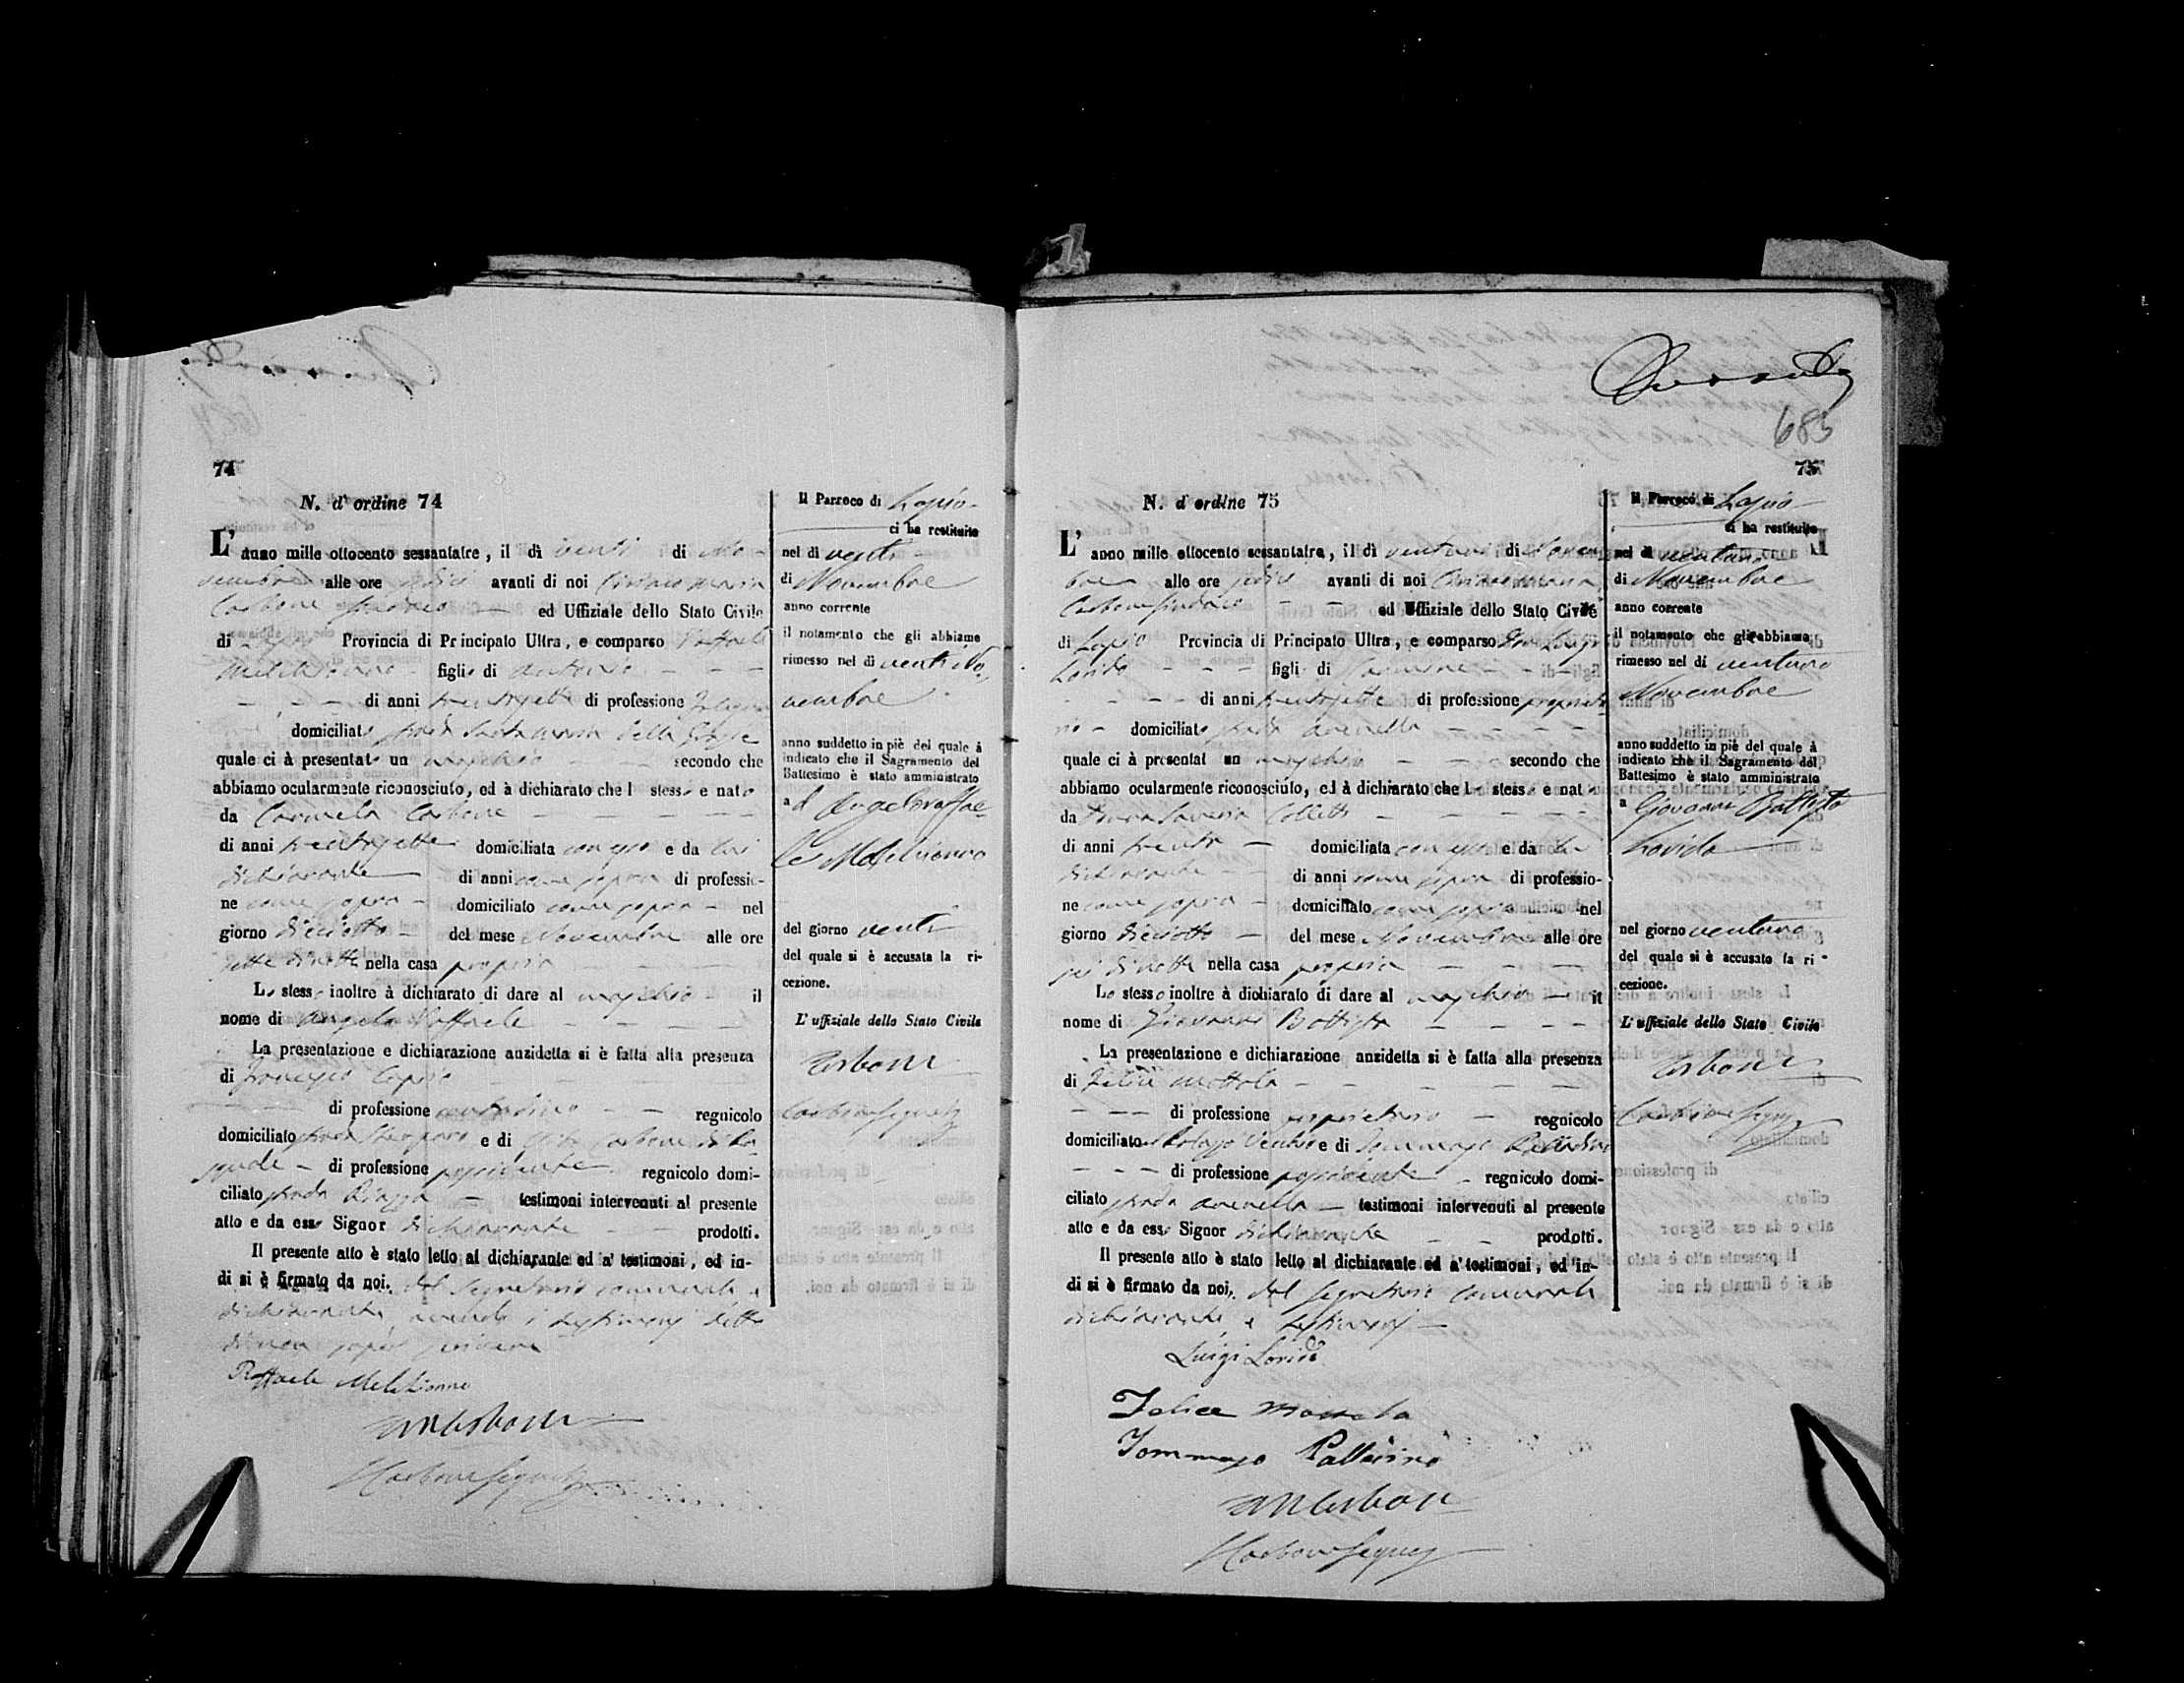 74
N. d'ordine 74
L'anno mille ottocento sessantatre, il dì venti di No-
vembre alle ore sedici avanti di noi Ciriaco Maria
Carbone Sindaco ed Uffiziale dello Stato Civile
di Lapio Provincia di Principato Ultra, e comparso Raffaele
Melchionno figlio di Antonio
di anni trentasette di professione
domiciliato strada Santa Maria delle Grazie
quale ci à presentato un maschio secondo che
abbiamo ocularmente riconosciuto, ed à dichiarato che l stesso e nato
da Carmela Carbone
di anni trentasette domiciliata con esso e da lui
dichiarante di anni come sopra di professio-
ne come sopra domiciliato come sopra nel
giorno dieciotto del mese Novembre alle ore
sette di notte nella casa propria
Lo stesso inoltre à dichiarato di dare al maschio il
nome di Angelo Raffaele
La presentazione e dichiarazione anzidetta si è fatta alla presenza
di Francesco
di professione contadino regnicolo
domiciliato strada e di Carbone di Pa
squale di professione possidente regnicolo domi-
ciliato strada Piazza testimoni intervenuti al presente
atto e da esso Signor dichiarante prodotti.
Il presente atto è stato letto al dichiarante ed a' testimoni, ed in-
di si è firmato da noi, dal segretario comunale e
dichiarante, avendo i testimoni detto
di non saper scrivere
Raffaele Melchionno
Carbone
Il Parroco di Lapio
ci ha restituito
nel di venti
di Novembre
anno corrente
il notamento che gli abbiamo
rimesso nel di venti No-
vembre
anno suddetto in piè del quale à
indicato che il Sagramento del
Battesimo è stato amministrato
ad Angelo Raffae-
le Melchionno
del giorno venti
del quale si è accusata la ri-
cezione.
L'uffiziale dello Stato Civile
Carbone
685
75
N. d'ordine 75
L'anno mille ottocento sessantatre, il dì ventuno di Novem
bre alle ore sedici avanti di noi Ciriaco Maria
Carbone Sindaco ed Uffiziale dello Stato Civile
di Lapio Provincia di Principato Ultra, e comparso Don Luigi
Lorido figlio di Carmine
di anni trentasette di professione proprieta
rio domiciliato strada Arenella
quale ci à presentat un maschio secondo che
abbiamo ocularmente riconosciuto, ed à dichiarato che lo stesso e nato
da Donna Saveria Colletti
di anni trenta domiciliata con esso e da lui
dichiarante di anni come sopra di professio-
ne come sopra domiciliato come sopra nel
giorno dieciotto del mese Novembre alle ore
sei di notte nella casa propria
Lo stesso inoltre à dichiarato di dare al maschio il
nome di Giovanni Battista
La presentazione e dichiarazione anzidetta si è fatta alla presenza
di Felice Mottola
di professione proprietario regnicolo
domiciliato Palazzo Vecchio e di Tommaso Palladino
di professione possidente regnicolo domi-
ciliato strada Arenella testimoni intervenuti al presente
atto e da esso Signor dichiarante prodotti.
Il presente atto è stato letto al dichiarante ed a' testimoni, ed in-
di si è firmato da noi, dal segretario comunale
dichiarante, e testimoni
Luigi Lorido
Felice Mottola
Tommaso Palladino
Carbone
Il Parroco di Lapio
ci ha restituito
nel di ventuno
di Novembre
anno corrente
il notamento che gli abbiamo
rimesso nel di ventuno
Novembre
anno suddetto in piè del quale à
indicato che il Sagramento del
Battesimo è stato amministrato
a Giovanni Battista
Lorido
nel giorno ventuno
del quale si è accusato la ri-
cezione.
L'uffiziale dello Stato Civile
Carbone